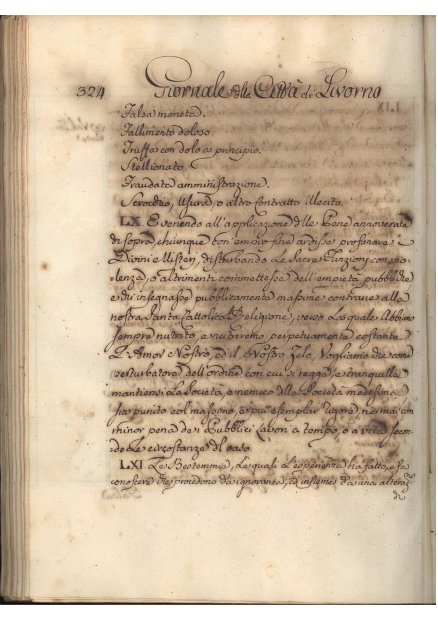 324 Giornale della Città di Livorno
Falsa moneta.
Fallimento doloso.
Truffa con dolo a principio.
Stellionato.
Fraudata amministrazione.
Scrocchio, Usura, o altro Contratto illecito.
LX. E venendo all'applicazione delle Pene annoverate
di sopra, chiunque con empio fine ardisse profanare i
Divini Misterj, disturbando le Sacre Funzioni con vio-
lenza, o altrimenti commettesse dell'empietà pubbliche
e chi insegnasse pubblicamente massime contrarie alla
nostra Santa Cattolica Religione, verso la quale Abbiamo
sempre nutrito, e nutriremo perpetuamente costante
l'Amor Nostro, ed il Nostro Zelo, Vogliamo che come
perturbatore dell'ordine con cui si regge, e tranquilla
mantiene la Società, e nemico della Società medesima
sia punito col massimo, e più esemplar rigore, no mai con
minor pena de' Pubblici Lavori a tempo, o a vita secon-
do le circostanze del caso.
LXI Le Bestemmie, le quali l'esperienza ha fatto, e fa
conoscere che procedono da ignoranza, ed insieme da una alteraz.
di